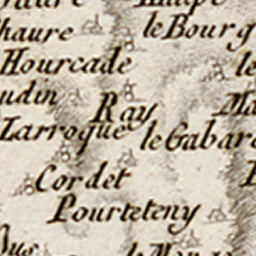 haure
le Bourg
Hourcade
le
udin
Ray
Ma
Larroque
le Gabar
Cordet
Pourteteny